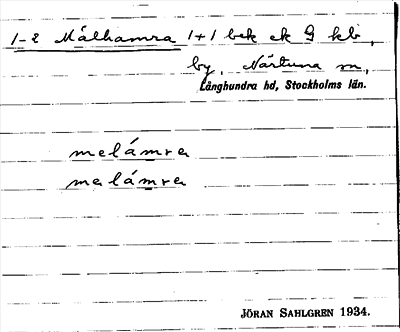 1-2 Målhamra 1+1 bek ek G kb,
by, Närtuna sn,
Långhundra hd, Stockholms län.
melámra
malámra
JÖRAN SAHLGREN 1934.